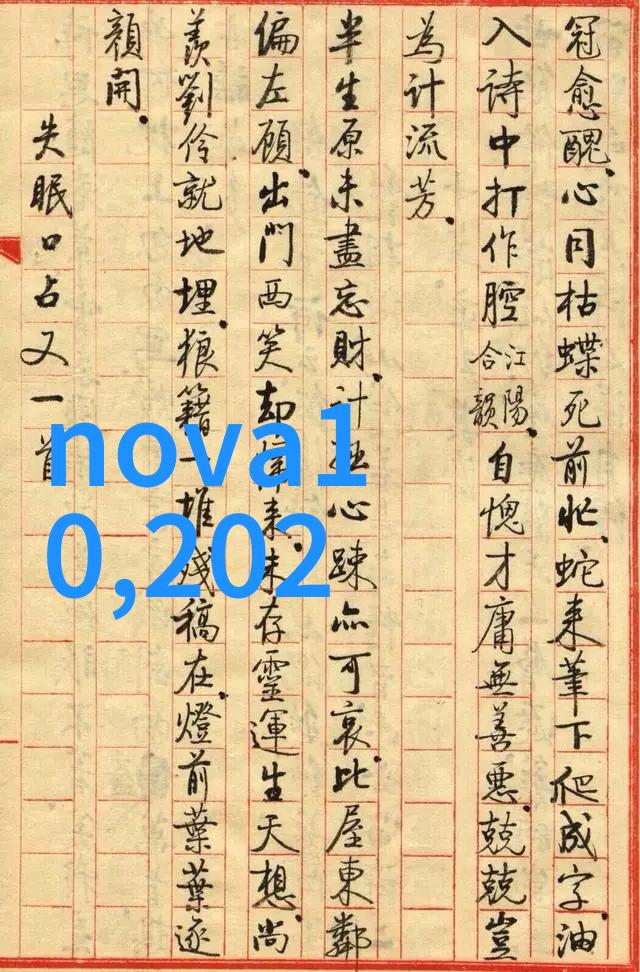 冠愈醜。心同枯蝶死前忙。蛇来筆下爬成字。油
入詩中打作腔江陽合韻。自愧才庸無善惡。兢兢豈
為計流芳。
半生原未盡忘財。計拙心踈亦可哀。比屋東鄰
偏左顧。出門西笑却来。未存靈運生天想。尚
羨劉伶就地埋。狼籍一堆殘稿在。燈前葉葉逐
顏開。
失眠口占又一首
nova1
0,202